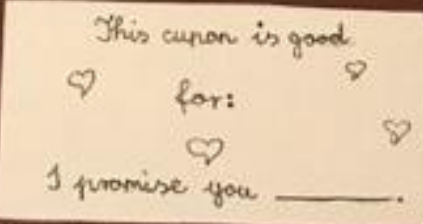 This cupon is good
for:
I promise you ________.